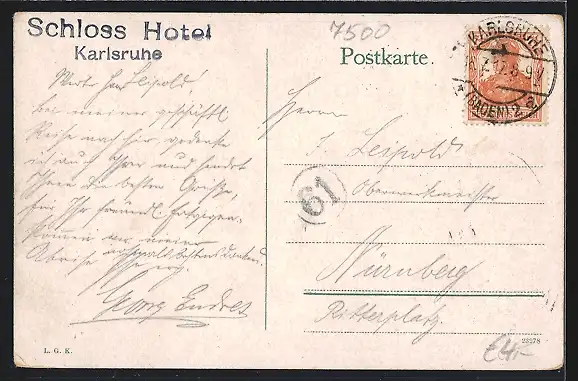 Schloss Hotel
Karlsruhe
7500
Postkarte.
KARLSRUHE
(BADEN) 2
Werter Herr Leipold!
bei meiner geschäftl.
Reise nach hier, gedenke
ich auch Ihrer und sendet
Ihnen die besten Grüße,
für Ihr freundl. Entgegen-
kommen vor meiner
Abreise nochmals besten Dank
Georg Endres
Herrn
J. Leipold
Oberwerkmeister
61
Nürnberg
Ritterplatz.
L. G. K.
23278
€4,-